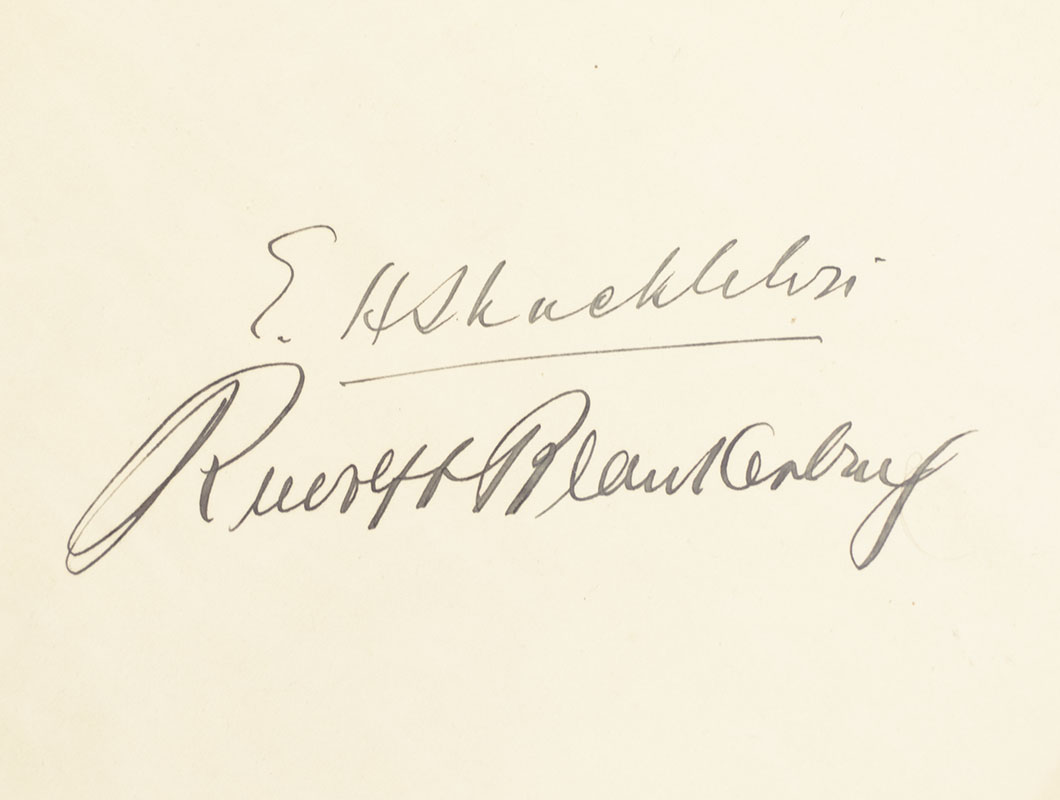 E. H Shackleton
Rudolph Blankenburg